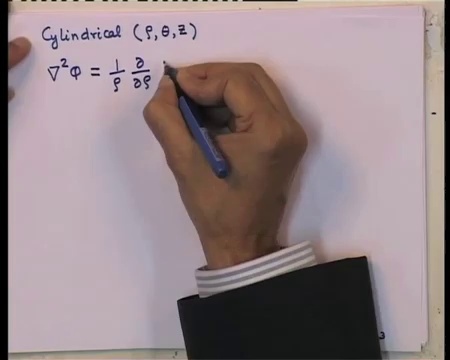 Cylindrical (ρ, θ, z)
∇²φ = 1/ρ ∂/∂ρ
3